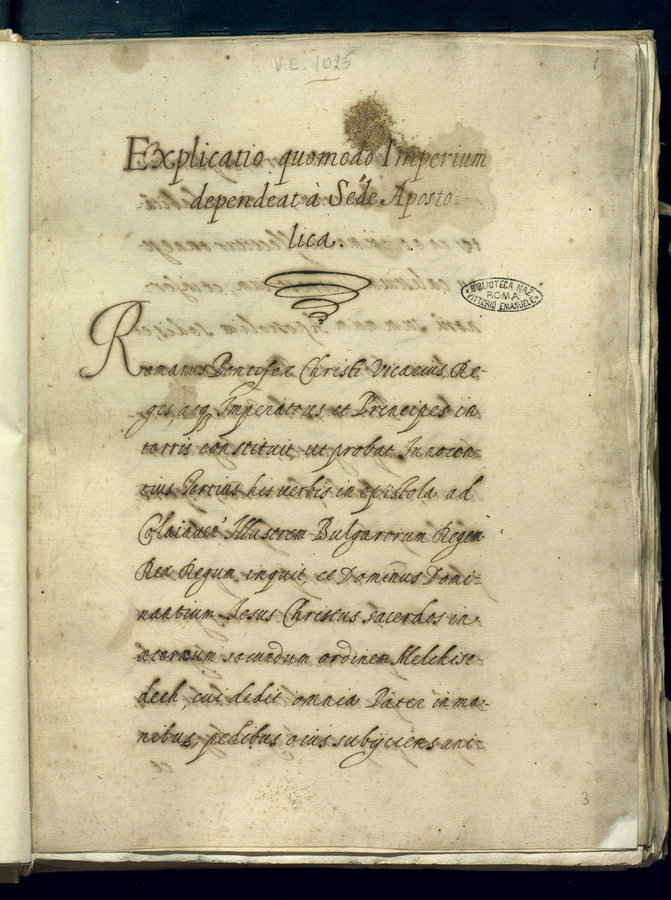 V.E. 1025
1
Explicatio quomodo Imperium
dependeat à Sede Aposto-
lica.
BIBLIOTECA NAZ.
ROMA
VITTORIO EMANUELE
Romanus Pontifex Christi Vicarius, Re-
ges, atq Imperatores et Principes in
terris constituit, ut probat Innocen-
tius Tertius his verbis in epistola ad
Illustrem Bulgarorum Regem
Rex Regum, inquit, et Dominus Domi-
nantium Jesus Christus sacerdos in
aeternum secundum ordinem Melchise-
dech, cui dedit omnia Pater in ma-
nibus, pedibus eius subijciens uni-
et
3